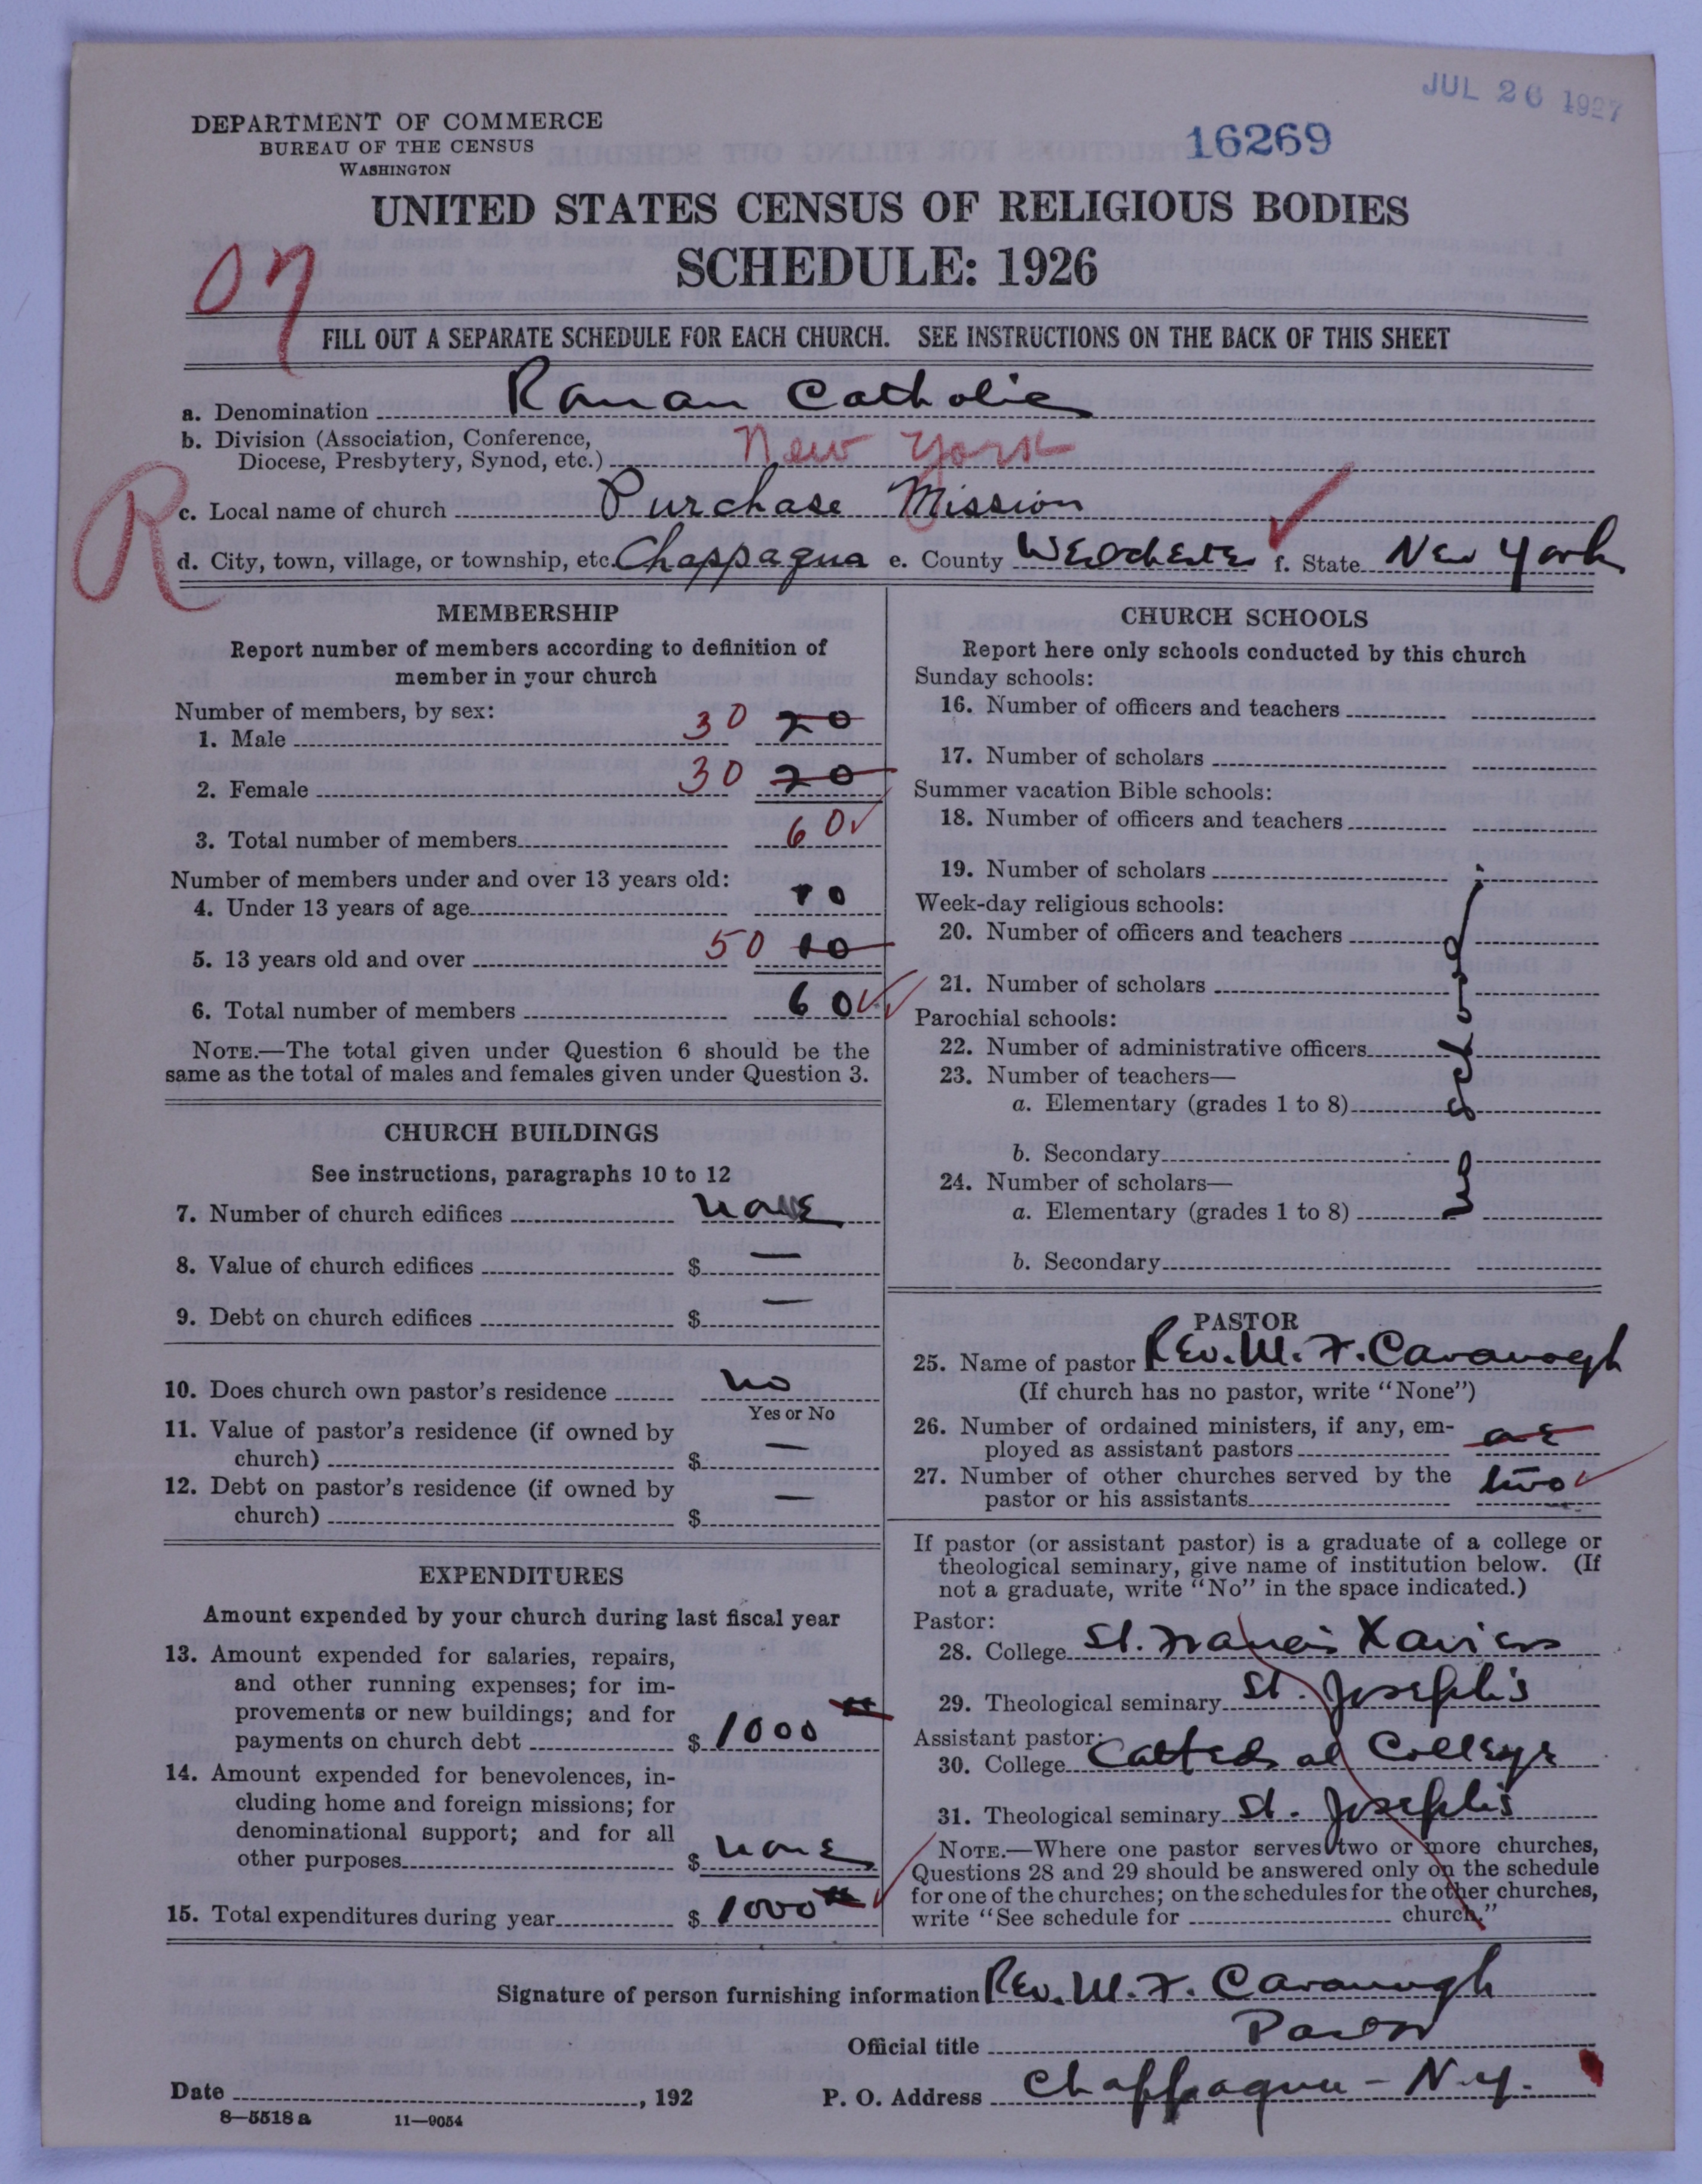 JUL 26 1927
DEPARTMENT OF COMMERCE
BUREAU OF THE CENSUS
WASHINGTON
16269
UNITED STATES CENSUS OF RELIGIOUS BODIES
SCHEDULE: 1926
FILL OUT A SEPARATE SCHEDULE FOR EACH CHURCH. SEE INSTRUCTIONS ON THE BACK OF THIS SHEET
a. Denomination Roman Catholic
b. Division (Association, Conference,
Diocese, Presbytery, Synod, etc.) New York
R
c. Local name of church Purchase Mission
d. City, town, village, or township, etc. Chappaqua e. County Westchester f. State New York
MEMBERSHIP
Report number of members according to definition of
member in your church
Number of members, by sex:
1. Male 30 20
2. Female 30 20
3. Total number of members 60
Number of members under and over 13 years old:
4. Under 13 years of age 10
5. 13 years old and over 50 10
6. Total number of members 60
NOTE.—The total given under Question 6 should be the
same as the total of males and females given under Question 3.
CHURCH BUILDINGS
See instructions, paragraphs 10 to 12
7. Number of church edifices none
8. Value of church edifices $ —
9. Debt on church edifices $ —
10. Does church own pastor's residence no
Yes or No
11. Value of pastor's residence (if owned by
church) $ —
12. Debt on pastor's residence (if owned by
church) $ —
EXPENDITURES
Amount expended by your church during last fiscal year
13. Amount expended for salaries, repairs,
and other running expenses; for im-
provements or new buildings; and for
payments on church debt $ 1000
14. Amount expended for benevolences, in-
cluding home and foreign missions; for
denominational support; and for all
other purposes $ none
15. Total expenditures during year $ 1000
CHURCH SCHOOLS
Report here only schools conducted by this church
Sunday schools:
16. Number of officers and teachers
17. Number of scholars
Summer vacation Bible schools:
18. Number of officers and teachers
19. Number of scholars
Week-day religious schools:
20. Number of officers and teachers
21. Number of scholars
Parochial schools:
22. Number of administrative officers
23. Number of teachers—
a. Elementary (grades 1 to 8)
b. Secondary
24. Number of scholars—
a. Elementary (grades 1 to 8)
b. Secondary
no school
PASTOR
25. Name of pastor Rev. W. F. Cavanagh
(If church has no pastor, write "None")
26. Number of ordained ministers, if any, em-
ployed as assistant pastors
27. Number of other churches served by the
pastor or his assistants two
If pastor (or assistant pastor) is a graduate of a college or
theological seminary, give name of institution below. (If
not a graduate, write "No" in the space indicated.)
Pastor:
28. College St. Francis Xaviers
29. Theological seminary St. Joseph's
Assistant pastor:
30. College Cathedral College
31. Theological seminary St. Joseph's
NOTE.—Where one pastor serves two or more churches,
Questions 28 and 29 should be answered only on the schedule
for one of the churches; on the schedules for the other churches,
write "See schedule for church."
Signature of person furnishing information Rev. W. F. Cavanagh
Official title Pastor
Date , 192 P. O. Address Chappaqua - N.Y.
8—5518 a 11—9054